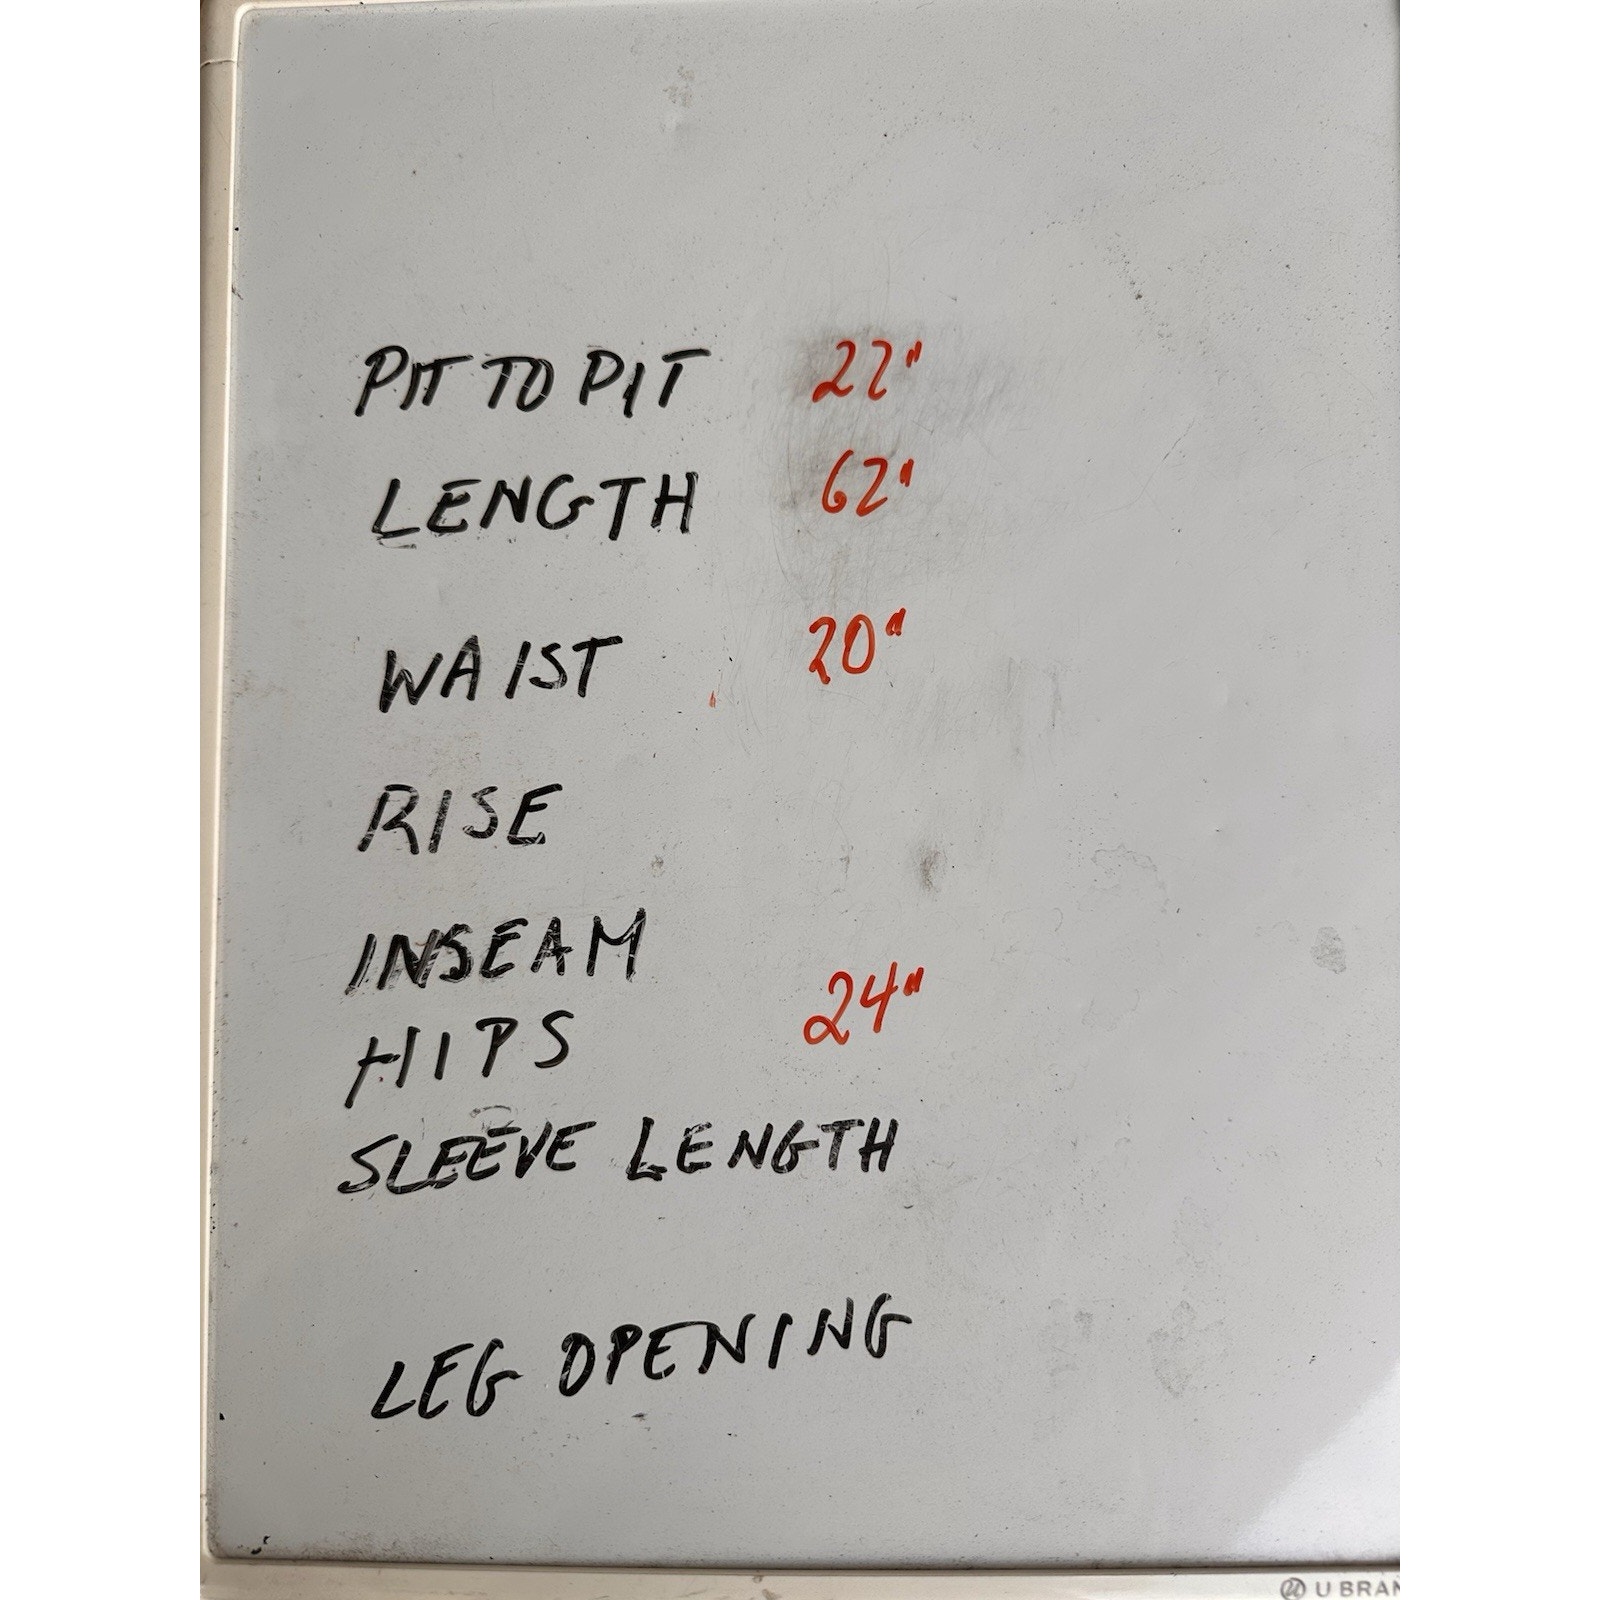 PIT TO PIT 22"
LENGTH 62"
WAIST 20"
RISE
INSEAM
HIPS 24"
SLEEVE LENGTH
LEG OPENING
U BRAN